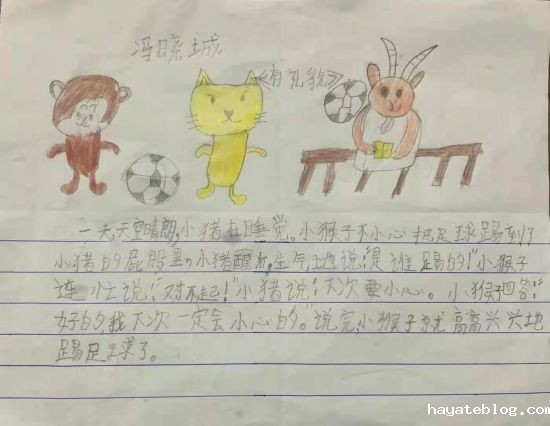 冯晓城
《有礼貌》
一天天空晴朗,小猪在睡觉。小猴子不小心把足球踢到了
小猪的屁股里。小猪醒了,生气地说:"是谁踢的!"小猴子
连忙说:"对不起!"小猪说:"下次要小心。小猴子回答:"
好的,我下次一定会小心的。"说完,小猴子就高高兴兴地
踢足球了。
hayateblog.com